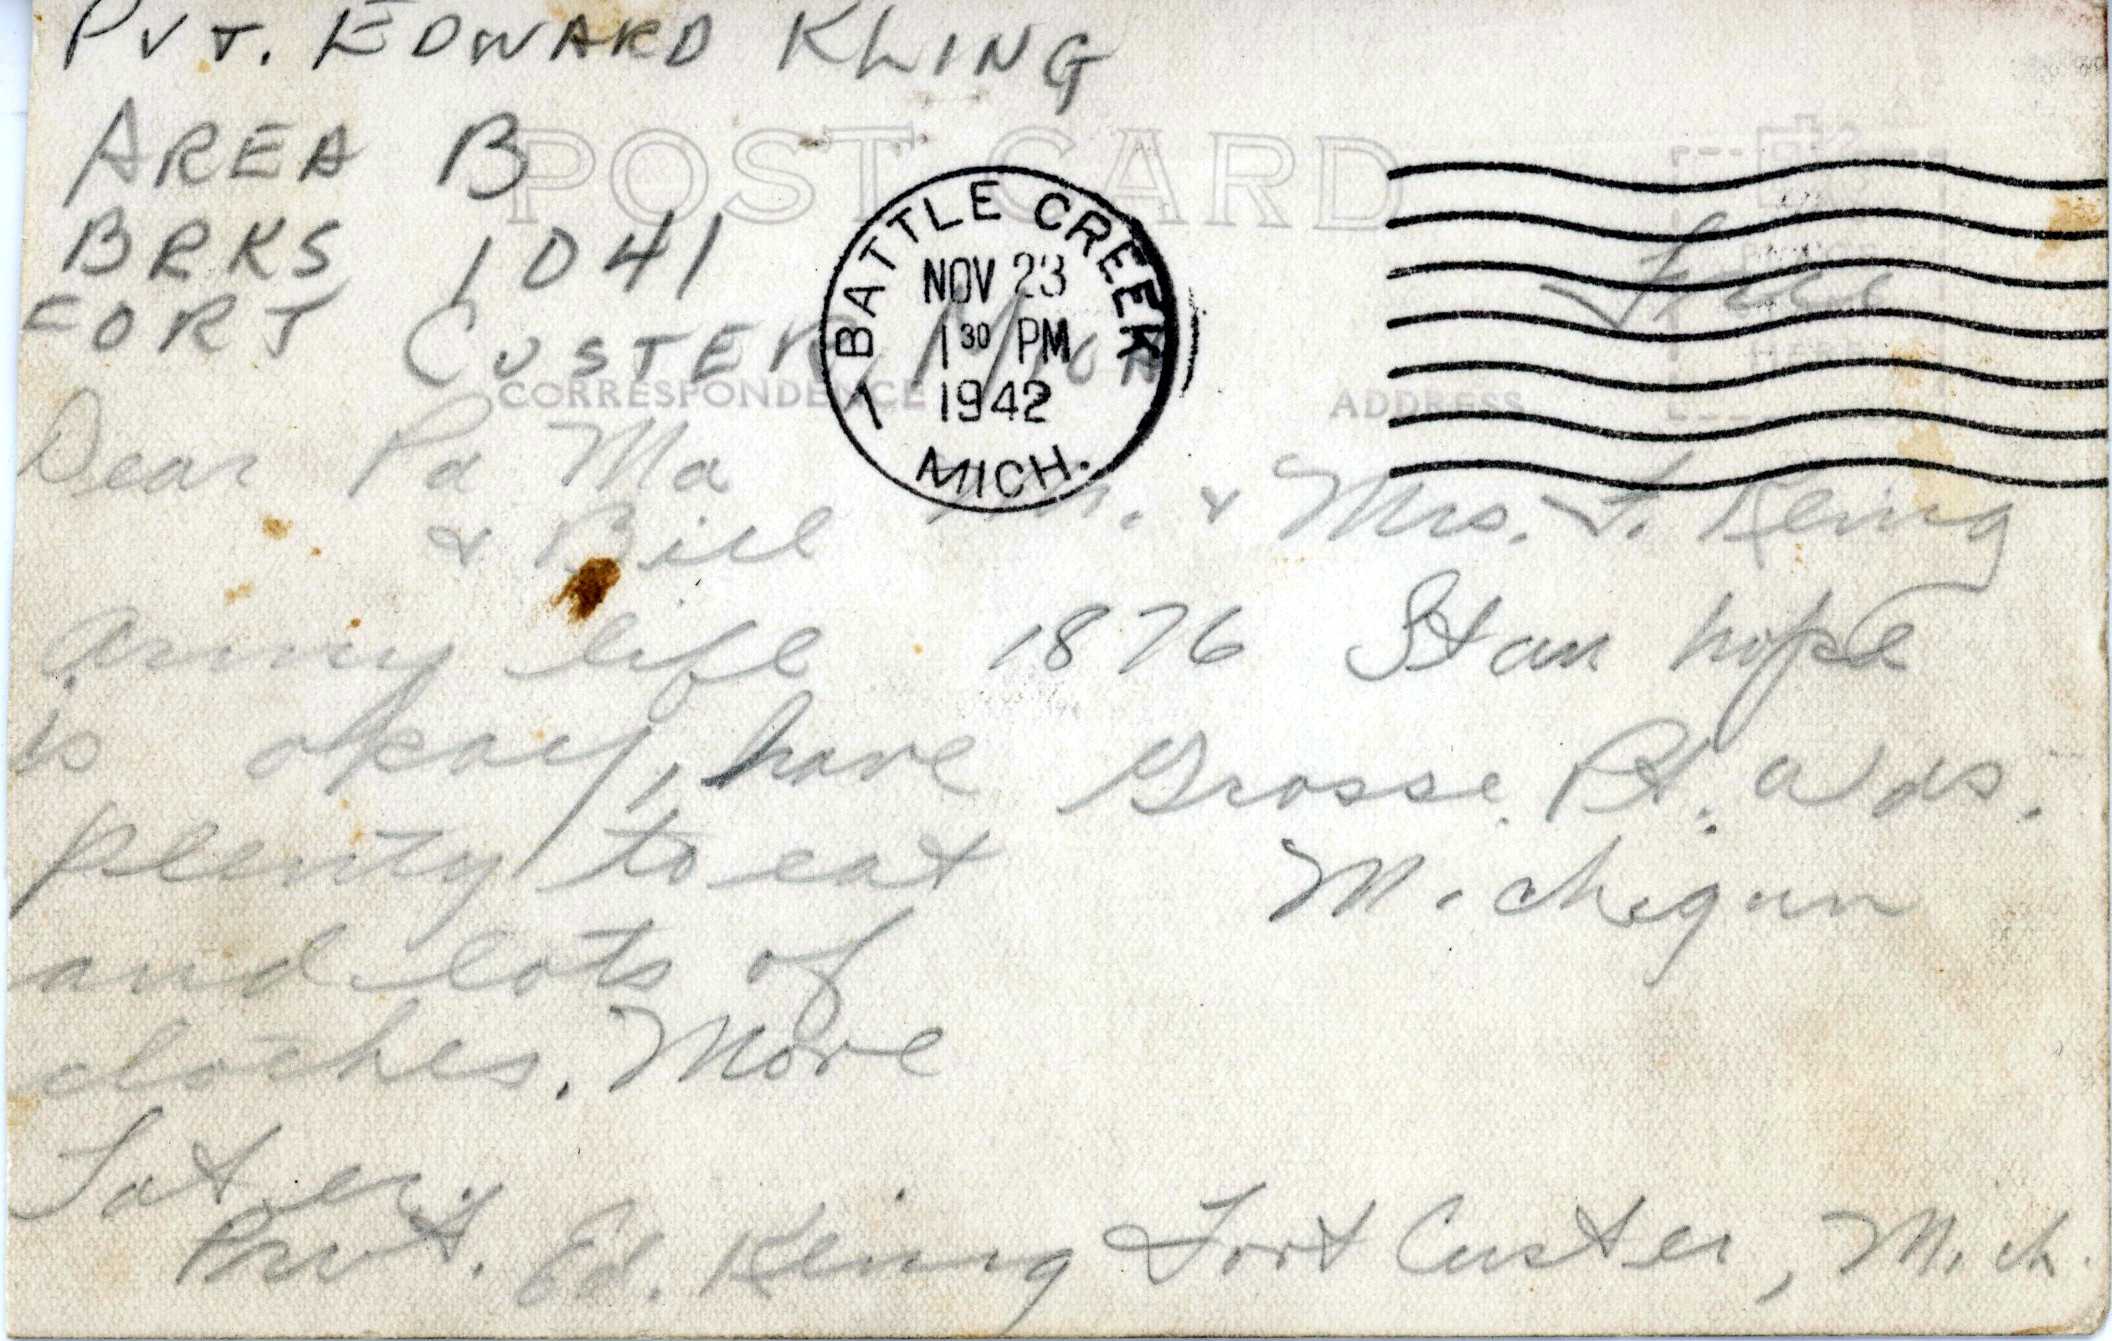 PVT. EDWARD KLING
AREA B
BRKS 1041
FORT CUSTER, MICH
POST CARD
BATTLE CREEK
NOV 23
1 30 PM
1942
MICH.
Free
HERE
CORRESPONDENCE
ADDRESS
Dear Pa Ma
& Bill
Army life
is okay, have
plenty to eat
and lots of
clothes. More
Later,
Pvt. Ed. Kling Fort Custer, Mich.
Mr. & Mrs. F. Kling
1876 Stanhope
Grosse Pt. Wds.
Michigan